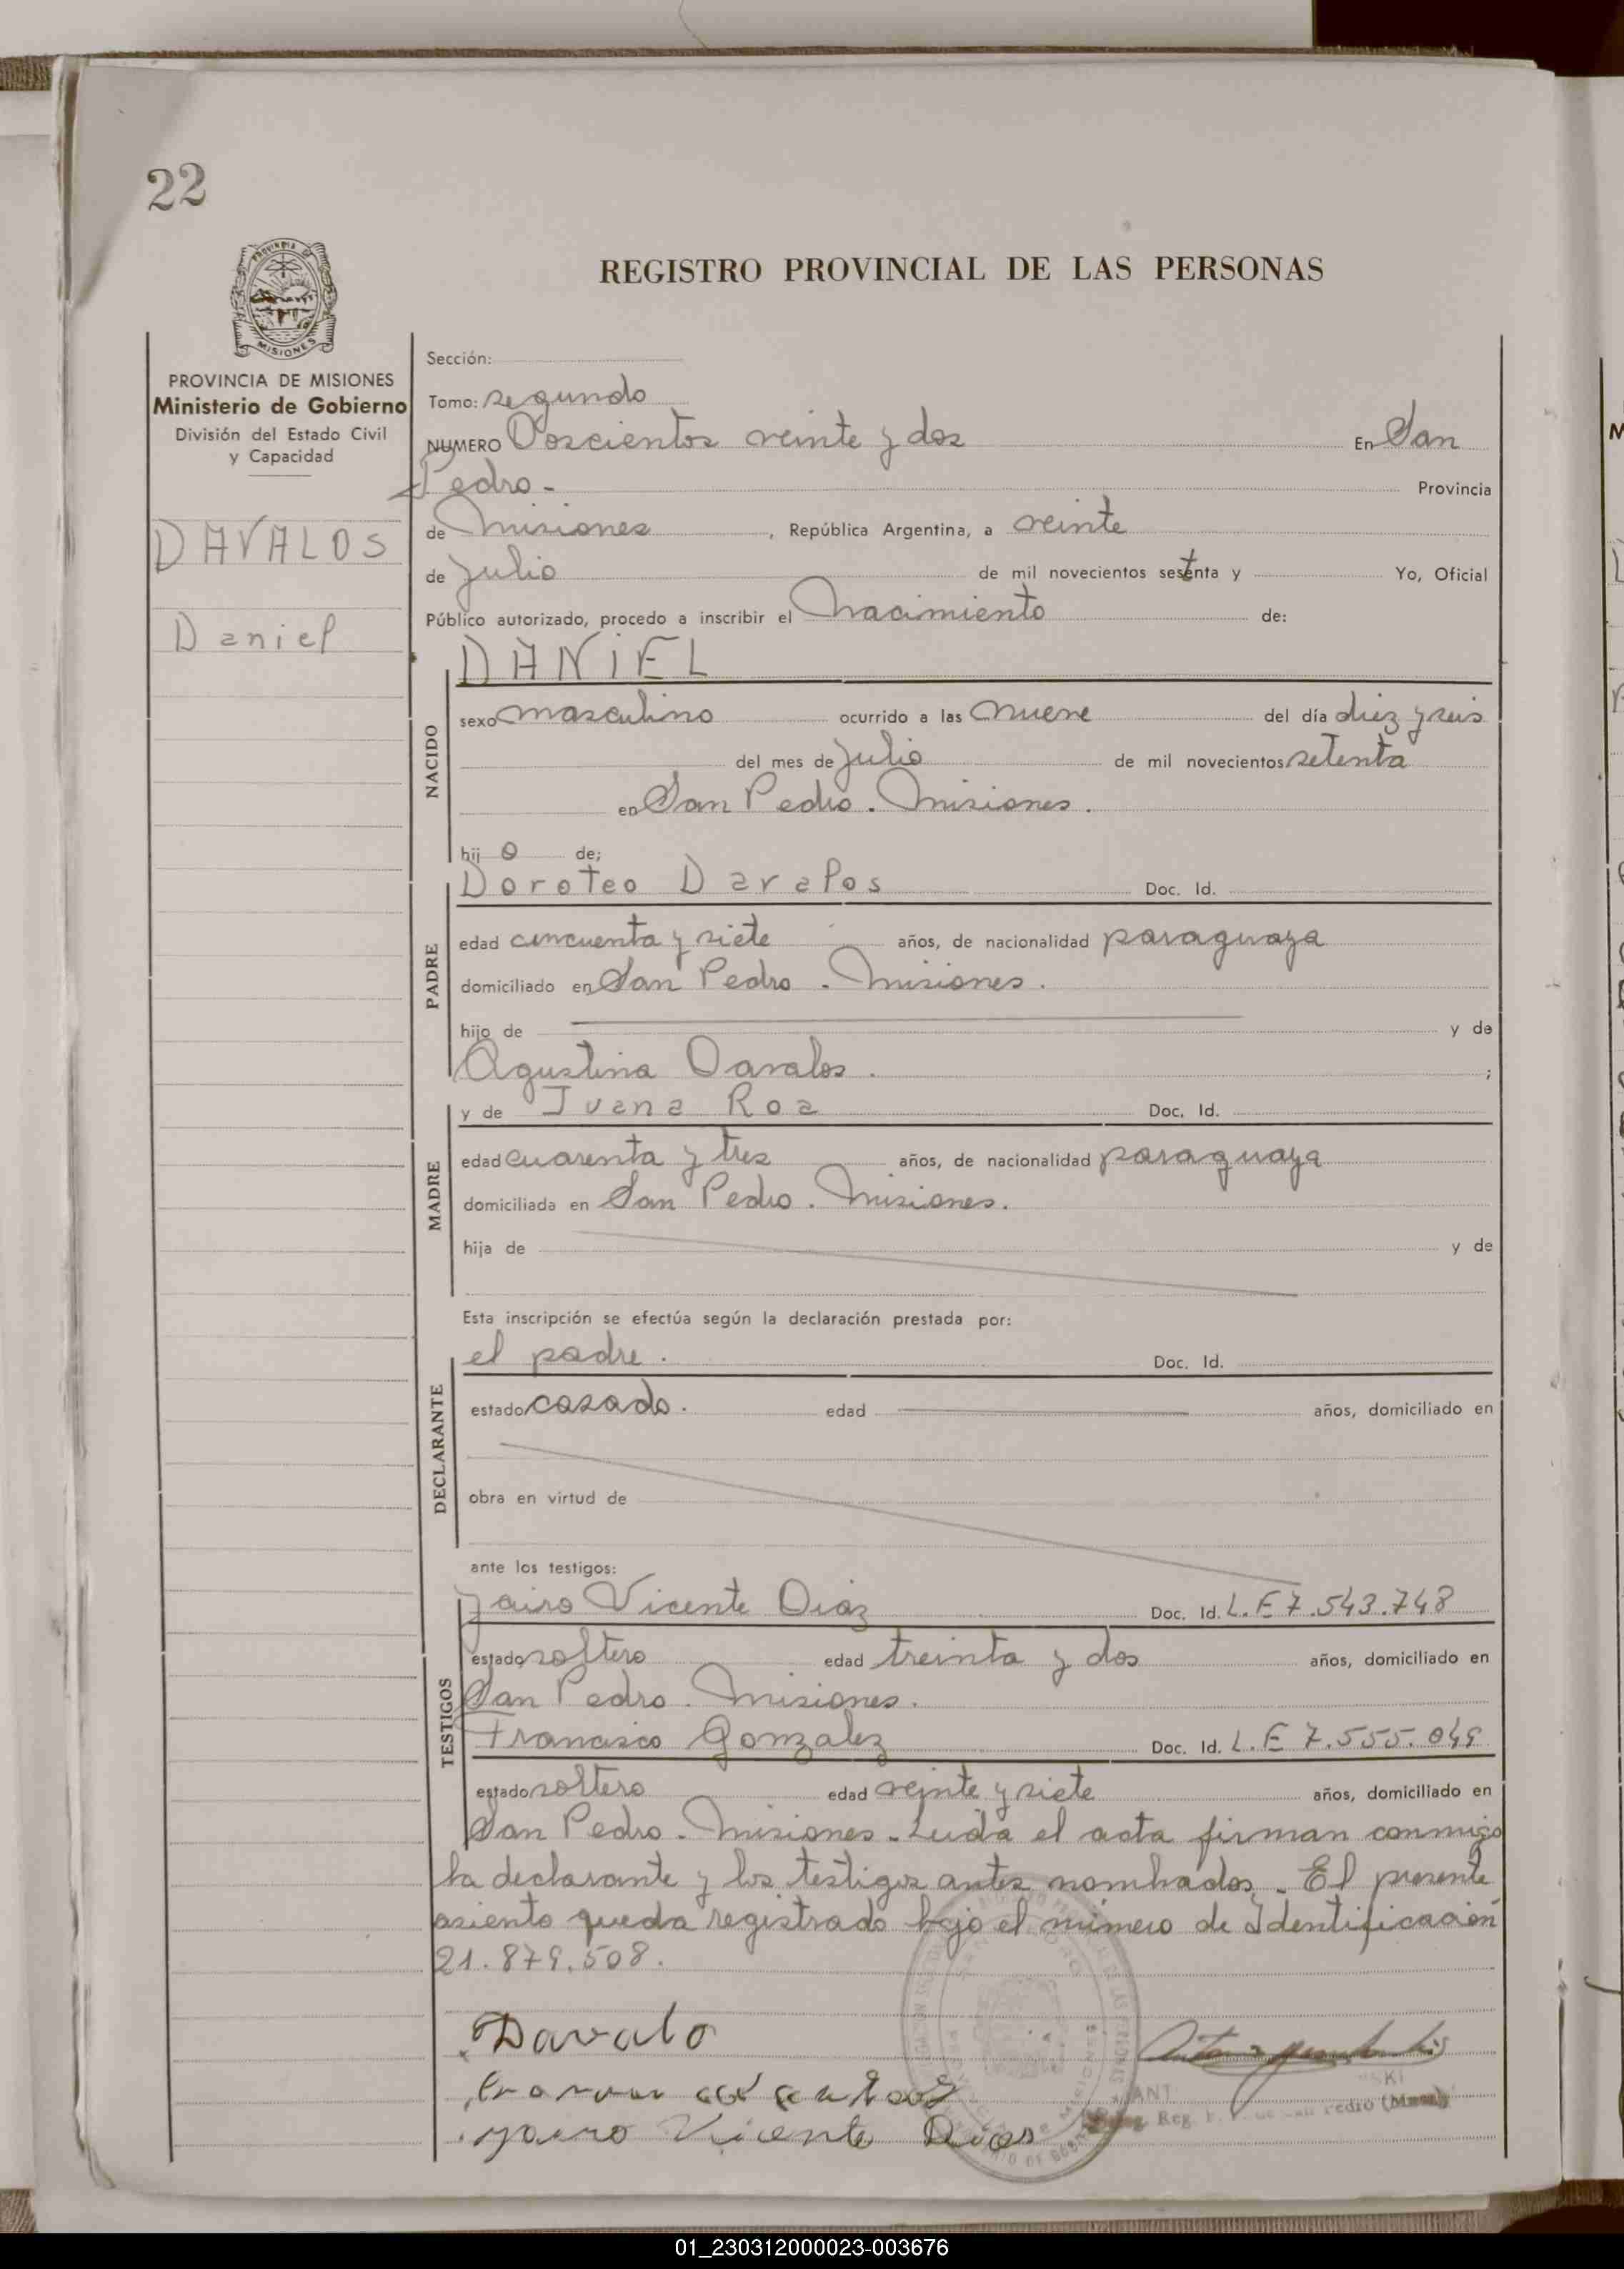 22
PROVINCIA DE
MISIONES
REGISTRO PROVINCIAL DE LAS PERSONAS
PROVINCIA DE MISIONES
Ministerio de Gobierno
División del Estado Civil
y Capacidad
DAVALOS
Daniel
Sección:
Tomo: segundo
NUMERO Doscientos veinte y dos En San
Pedro - Provincia
de Misiones, República Argentina, a veinte
de Julio de mil novecientos setenta y Yo, Oficial
Público autorizado, procedo a inscribir el Nacimiento de:
DANIEL
NACIDO
sexo masculino ocurrido a las nueve del día diez y seis
del mes de Julio de mil novecientos setenta
en San Pedro. Misiones.
hijo de;
Doroteo Davalos Doc. Id.
PADRE
edad cincuenta y siete años, de nacionalidad paraguaya
domiciliado en San Pedro - Misiones.
hijo de y de
Agustina Davalos. ;
y de Juana Roa Doc. Id.
MADRE
edad cuarenta y tres años, de nacionalidad paraguaya
domiciliada en San Pedro. Misiones.
hija de y de
Esta inscripción se efectúa según la declaración prestada por:
el padre. Doc. Id.
DECLARANTE
estado casado. edad años, domiciliado en
obra en virtud de
ante los testigos:
Jairo Vicente Diaz Doc. Id. L.E 7.543.748
TESTIGOS
estado soltero edad treinta y dos años, domiciliado en
San Pedro. Misiones.
Francisco Gonzalez Doc. Id. L.E 7.555.049
estado soltero edad veinte y siete años, domiciliado en
San Pedro - Misiones - Leida el acta firman conmigo
la declarante y los testigos antes nombrados. - El presente
asiento queda registrado bajo el número de Identificación
21.879.508.
Davalo
Jairo Vicente Dias
01_230312000023-003676